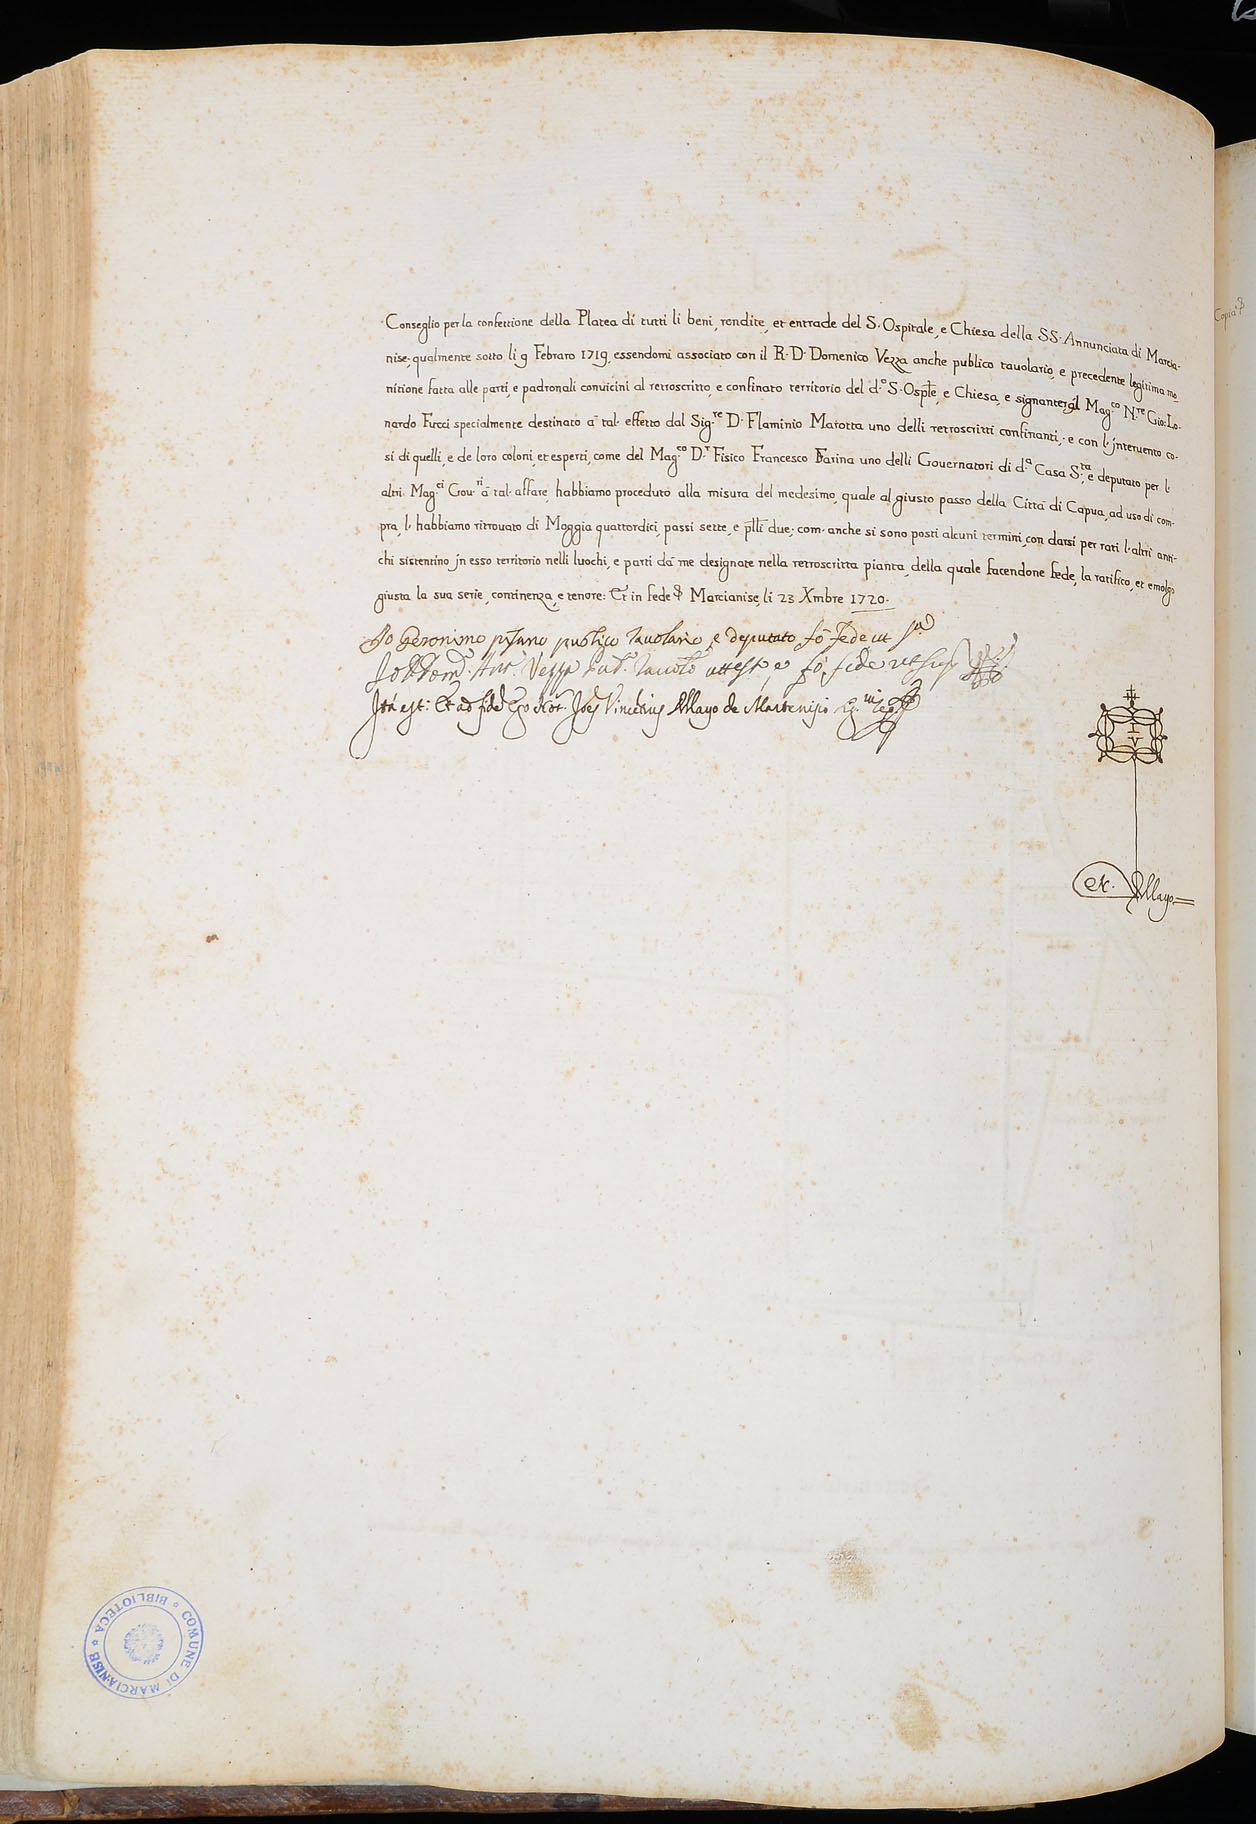 Conseglio per la confettione della Platea di tutti li beni, rendite, et entrade del S. Ospitale, e Chiesa della SS. Annunciata di Marcia-
nise; qualmente sotto li 9 Febraro 1719, essendomi associato con il R. D. Domenico Vezza anche publico tauolario, e precedente legitima mo-
nitione fatta alle parti, e padronali conuicini al retroscritto, e confinato territorio del d.º S. Ospłe, e Chiesa, e signanter al Mag.co N.re Gio: Lo-
nardo Fucci specialmente destinato à tal' effetto dal Sig.re D. Flaminio Matotta uno delli retroscritti confinanti; e con l'jnteruento co-
si di quelli, e de loro coloni, et esperti, come del Mag.co D.r Fisico Francesco Farina uno delli Gouernatori di d.a Casa S.ta, e deputato per l'
altri Mag.ci Gou.ri à tal' affare, habbiamo proceduto alla misura del medesimo, quale al giusto passo della Città di Capua, ad uso di com-
pra, l'habbiamo ritrouato di Moggia quattordici, passi sette, e płłi due; com' anche si sono posti alcuni termini, con darsi per rati l'altri anti-
chi sistentino jn esso territorio nelli luochi, e parti dà me designate nella retroscritta pianta, della quale facendone fede, la ratifico, et emolgo
giusta la sua serie, continenza, e tenore: Et in fede Marcianise, li 23 Xmbre 1720.
Io Geronimo publico Tauolario, e deputato fò fede ut s.a
Io D. Dom.co Ant.o Vezza Pub.o Tauol.o attesto, e fò fede ut sup.a
Ità est: Et ad fidẽ Ego Not. Joẽs Vincẽtius Mayo de Martenisio
I V
N. Mayo
Copia
COMUNE DI MARCIANISE * BIBLIOTECA *